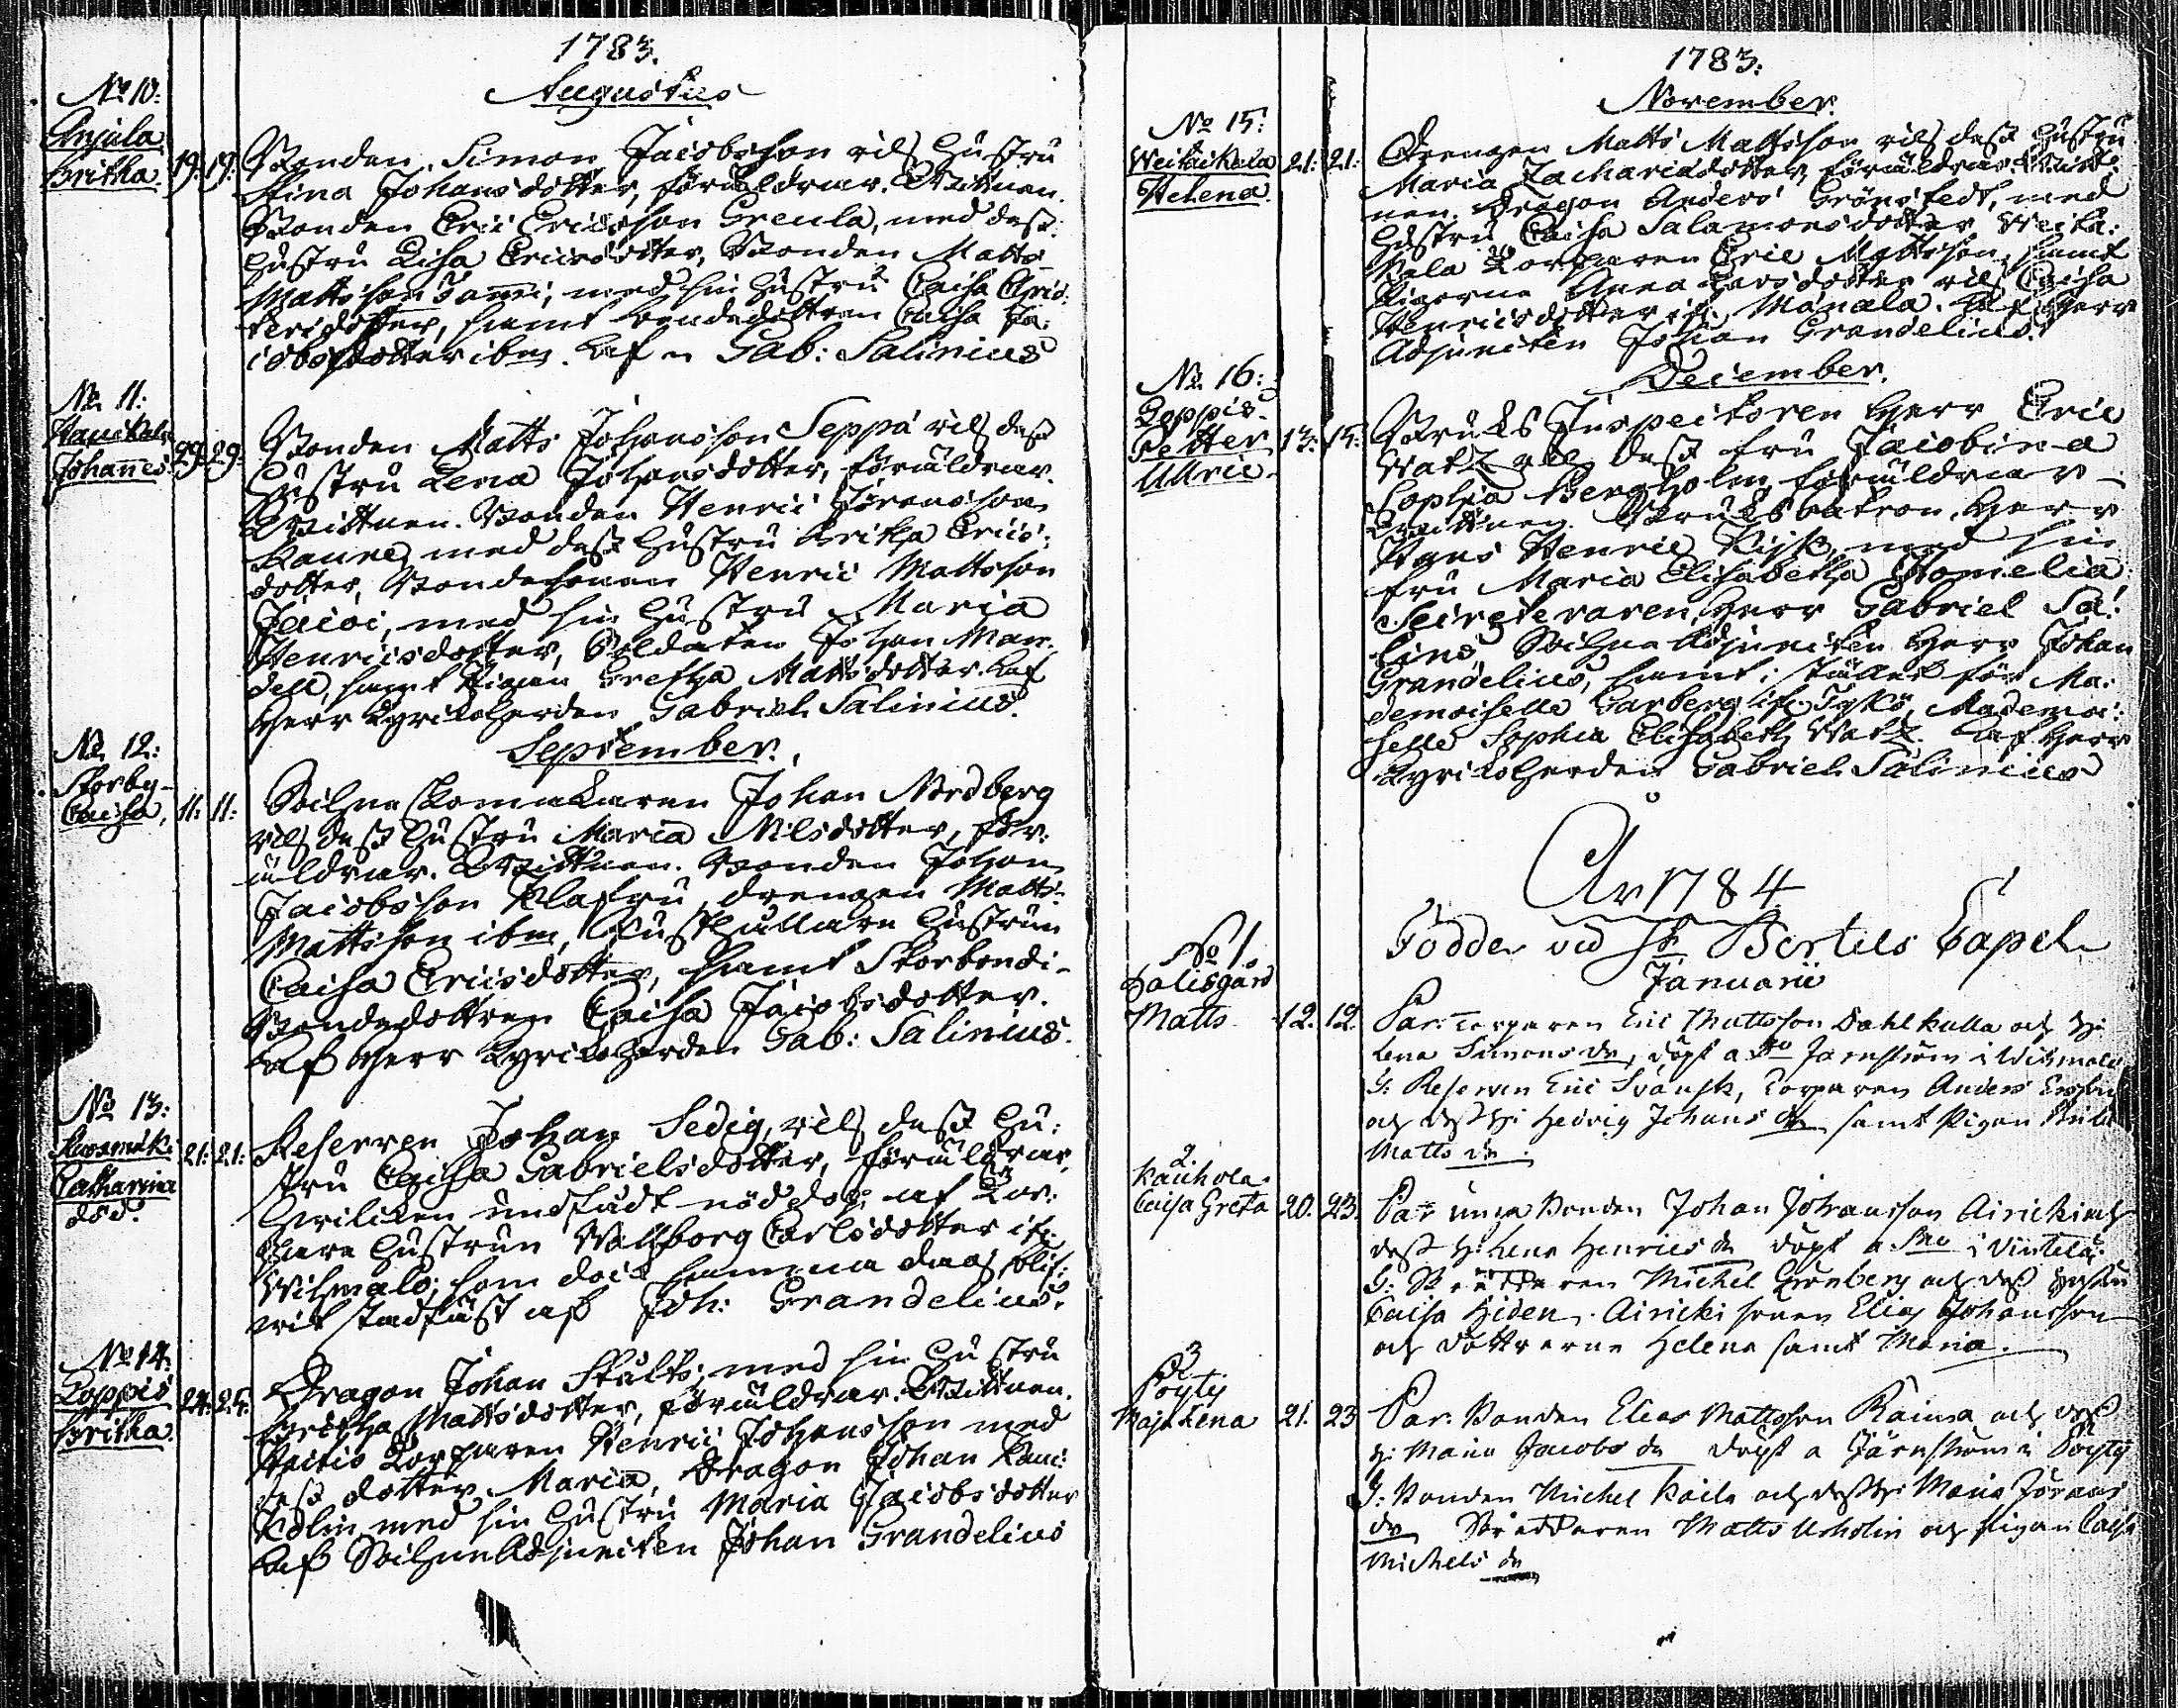 1783.
Augustus
No 10:
Anjala
Britha. 19: 19:
Bonden Simon Jacobsson och Hustru
Stina Johansdotter, föräldrar. Vittnen.
Bonden Eric Ericsson Grecula, med dess
Hustru Lisa Ericsdotter, Bonden Matts
Mattsson Jommi, med sin Hustru Caisa Chris:
tersdotter, samt bondedottren Caisa Ja:
cobsdotter ibm. Af n Gab: Salinius
No 11:
Johannes. 29: 29:
Bonden Matts Johansson Seppä och dess
Hustru Lena Johansdotter, föräldrar.
Vittnen. Bonden Henric Jöransson
med dess Hustru Britha Erics:
dotter, Bondesonen Henric Mattsson
Jäicvi, med sin Hustru Maria
Henricsdotter, Soldaten Johan Man:
dell, samt Pigan Gretha Mattsdotter. Af
Herr Kyrckoherden Gabriel Salinius.
September.
No 12:
Storby
Caisa, 11: 11:
Sockne Skomakaren Johan Nordberg
och dess Hustru Maria Nilsdotter, för:
äldrar. Vittnen. Bonden Johan
Jacobsson Klastru, drengen Matts
Mattsson ibm, Hustrun
Caisa Ericsdotter, samt Storbondi
Bondedottren Caisa Jacobsdotter.
Af Herr Kyrckoherden Gab: Salinius.
No 13:
Catharina
död. 21: 21:
Reserven Johan Sedig, och dess Hu:
stru Caisa Gabrielsdotter, föräldrar,
undfådt nöddop af Tor:
pare Hustrun Wallborg Carlsdotter ifr:
Wihmalo; som dock hemma dog, blif:
vit stadfäst af Joh: Grandelius.
No 14:
Koppis
Britha. 24: 25:
Dragon Johan Stålt; med sin Hustru
Britha Mattsdotter, föräldrar. Vittnen.
Torparen Henric Johansson med
dess dotter Maria, Dragon Johan
med sin Hustru Maria Jacobsdotter
Af Sockne Adjuncten Johan Grandelius
1783:
November.
No 15:
Weitakala
Helena. 21: 21:
Drengen Matts Mattsson och dess Hustru
Maria Zachariadotter, föräldrar. Vitt:
nen. Dragon Anders Grönstedt, med
Hustru Caisa Salamonsdotter Weita:
kala Torparen Eric Mattsson, samt
Pigorna Anna Larsdotter och Caisa
Henricsdotter ifr. Manala. Af Herr
Adjuncten Johan Grandelius.
December.
No 16:
Koppis.
Petter
Ulric 13: 15:
Bruks Inspectoren Herr Eric
Watz och dess fru Jacobina
Sophia Bergholm, föräldrar
Vittnen. Bruks Patron, Herr
Hans Henric Kijk, med sin
fru Maria Elisabetha Homelia
Secreteraren, Herr Gabriel Sa:
Sockne Adjuncten Herr Johan
Grandelius, samt i stället för Ma:
demoiselle Garberg ifr. Tykö, Mademoi:
selle Sophia Elisabeth Watz. Af Herr
Kyrckoherden Gabriel Salinius
År 1784
Födde vid St Bertils Capel
Januarii
No 1.
Salisgård
Matts 12. 12.
Par: Torparen Eric Mattsson Dahlkulla och H:
Lena Simons dr, döpt a Do Jernström i Wihmalo
G: Reserven Eric Svänsk, Torparen Anders
och dess H: Hedvig Johans dr samt Pigan
Matts dr.
2.
Kauhola
Caisa Greta 20. 23.
Par unga Bonden Johan Johansson Airicki och
dess H: Lena Henrics dr döpt a Do i Vintelä
G: Michel Grönberg och dess Hustru
Caisa Hiden. Airicki sonen Elias Johansson
och döttrarne Helena samt Maria.
3
Pöyty
Maja Lena 21. 23
Par: Bonden Elias Mattsson Kaima och dess
H: Maria Jacobs dr döpt a Järnström i Pöyty
G: Bonden Michel Kaila och dess H: Maria Jörans
dr Matts Urholin och Pigan Caisa
Michels dr